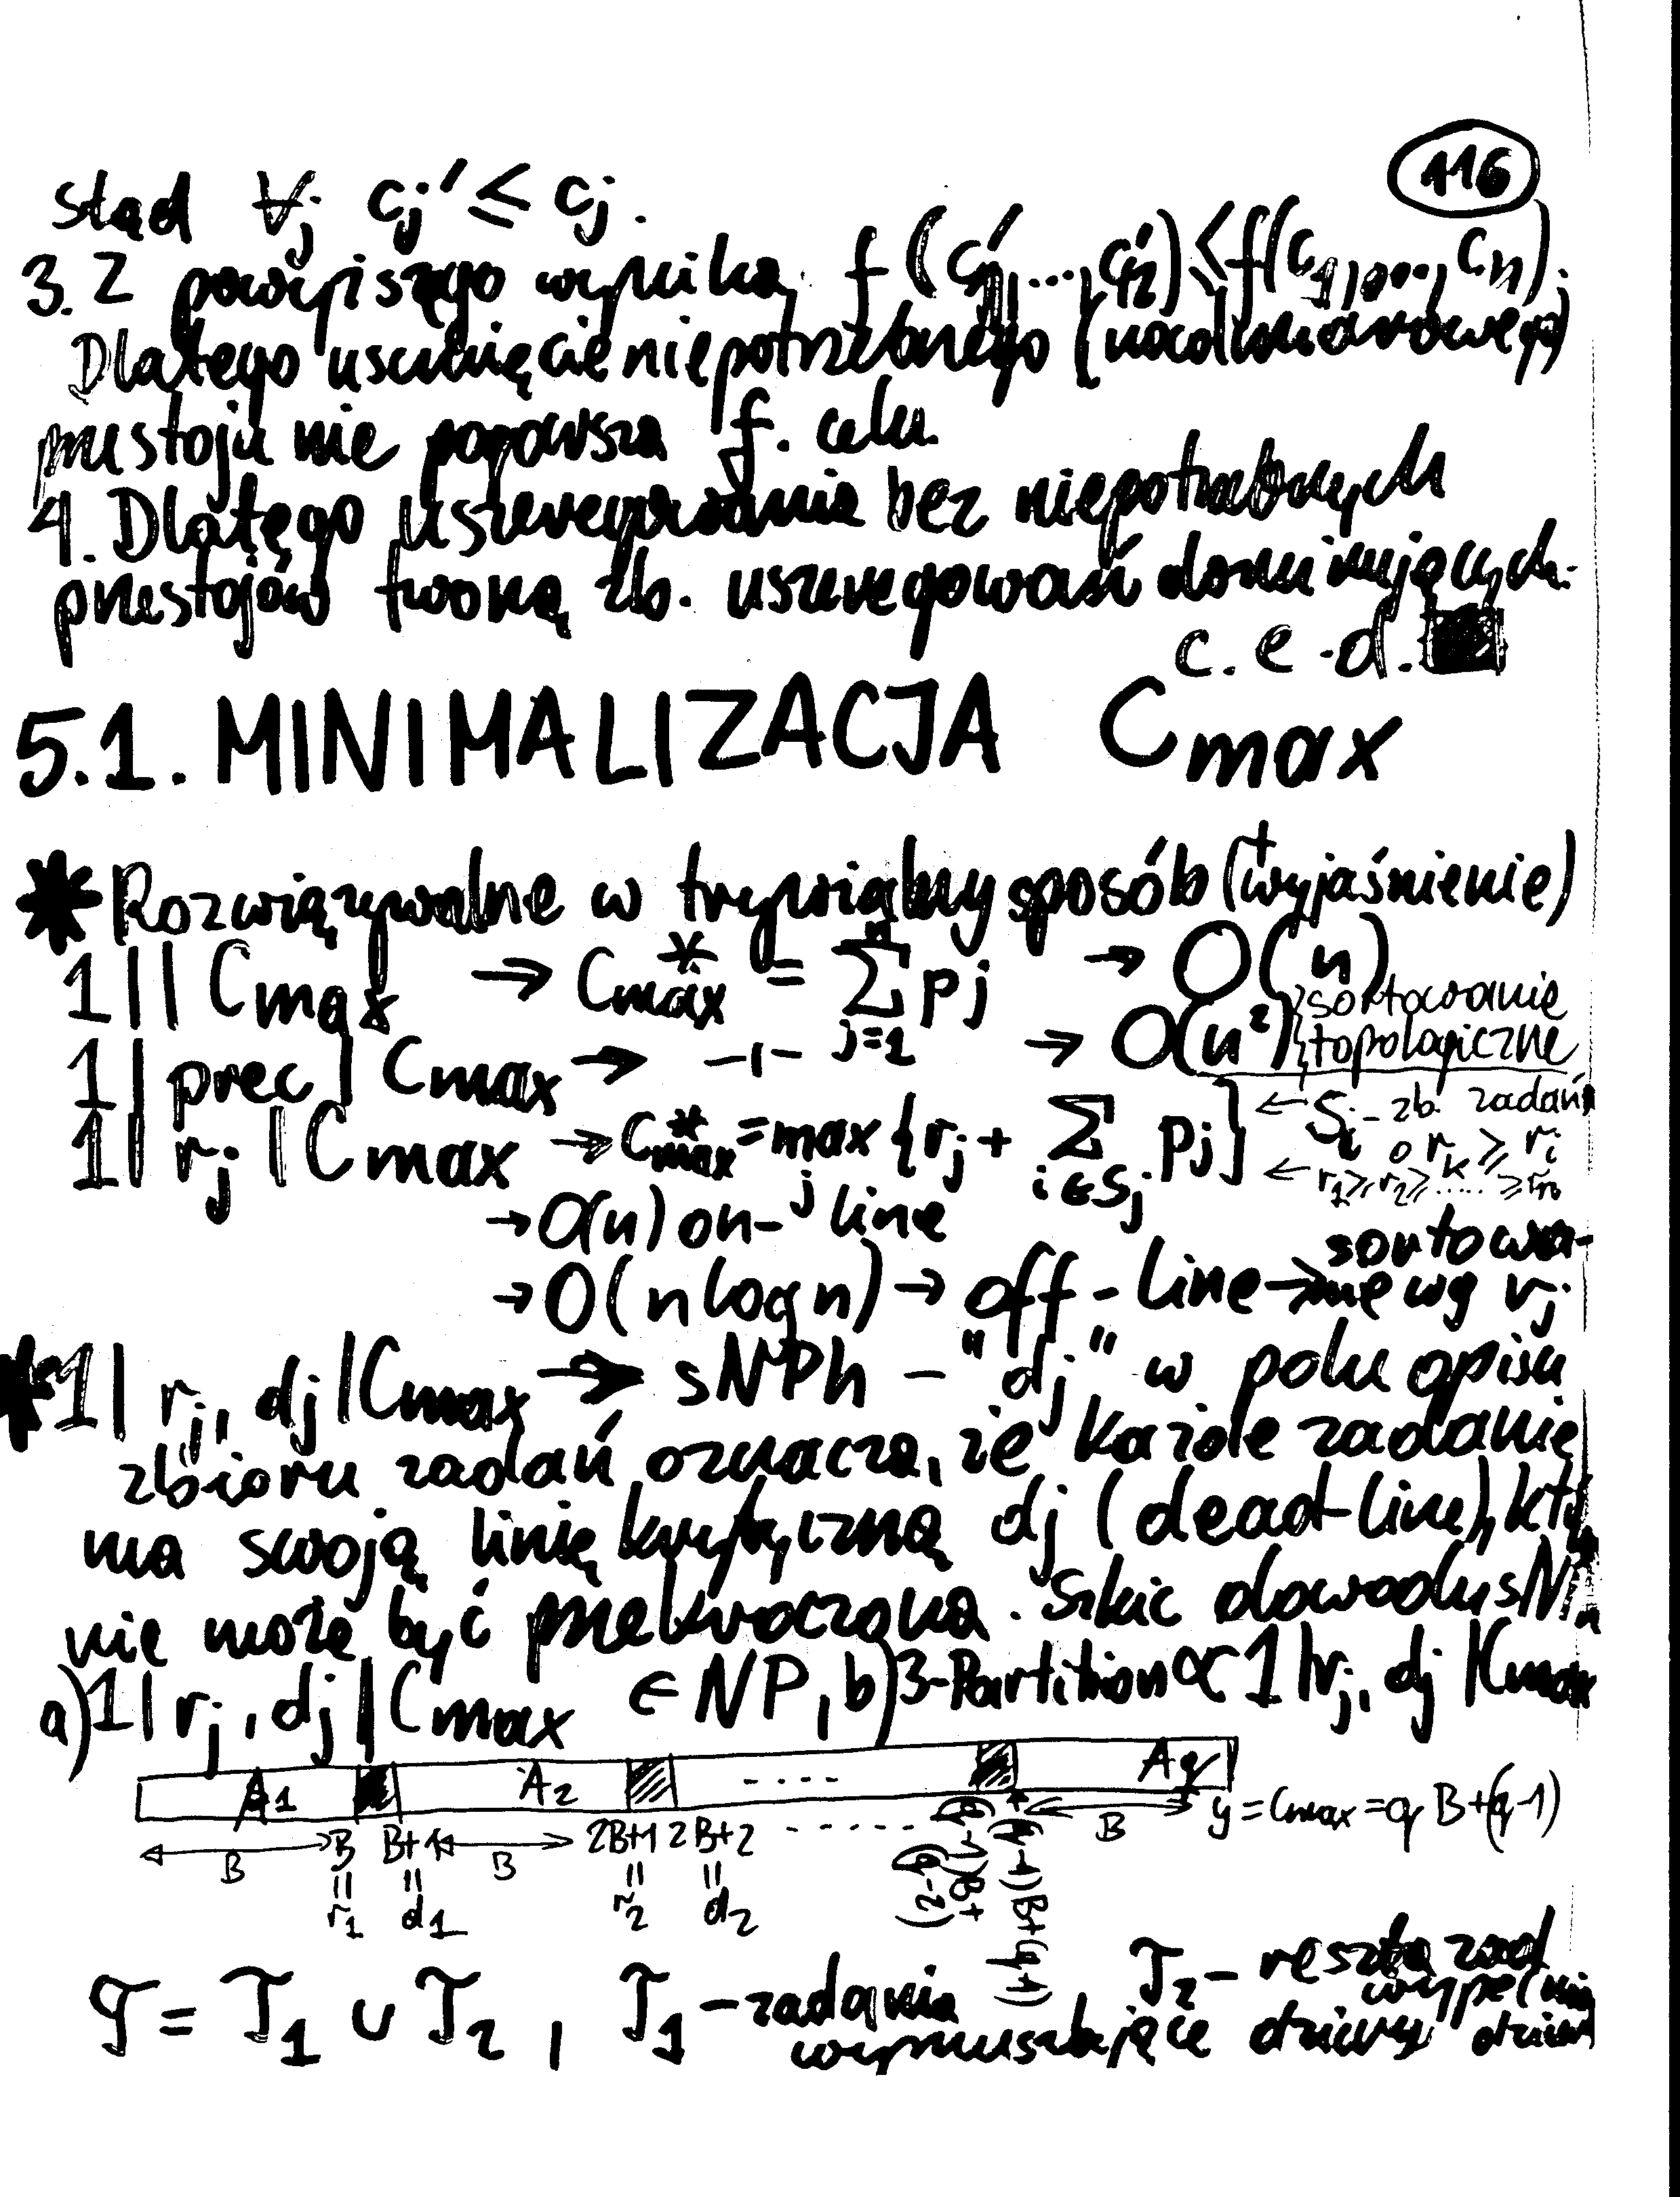 116
stąd ∀j Cj' ≤ Cj.
3. Z powyższego wynika, f(C1',...,Cn') ≤ f(C1,...,Cn).
Dlatego usunięcie niepotrzebnego (nadmiarowego)
przestoju nie pogorsza f. celu.
4. Dlatego uszeregowania bez niepotrzebnych
przestojów tworzą zb. uszeregowań dominujących.
c.e.d.
5.1. MINIMALIZACJA Cmax
* Rozwiązywalne w trywialny sposób (+ wyjaśnienie)
1||Cmax → C*max = Σ_{j=1}^{n} pj → O(n)
1|prec|Cmax → -||- → O(n²) } sortowanie topologiczne
1|rj|Cmax → C*max = max_j {rj + Σ_{i∈Sj} pj} ← Si - zb. zadań o rk ≥ ri
← r1 ≥ r2 ≥ ..... ≥ rn
→ O(n) on-line
→ O(n log n) → off-line → sortowanie wg rj
* 1|rj, dj|Cmax → sNPh - "dj" w polu opisu
zbioru zadań oznacza, że każde zadanie
ma swoją linię krytyczną dj (dead-line),
nie może być przekroczona. Szkic dowodu
a) 1|rj, dj|Cmax ∈ NP, b) 3-Partition ∝ 1|rj, dj|Cmax
A1 A2 ..... Aq
B B B+1 B 2B+1 2B+2 ....... (q-1)B+(q-2) (q-1)B+(q-1) B y = Cmax = qB+(q-1)
r1 = d1 = r2 = d2 =
T = T1 ∪ T2, T1 - zadania wymuszające dziury T2 - reszta zad.